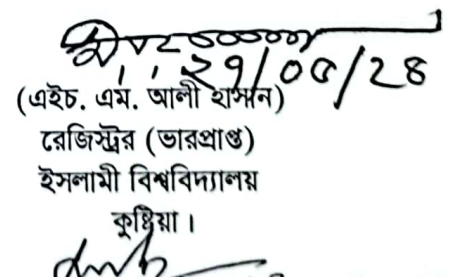 ২৭/০৫/২৪
(এইচ. এম. আলী হাসান)
রেজিস্ট্রর (ভারপ্রাপ্ত)
ইসলামী বিশ্ববিদ্যালয়
কুষ্টিয়া।